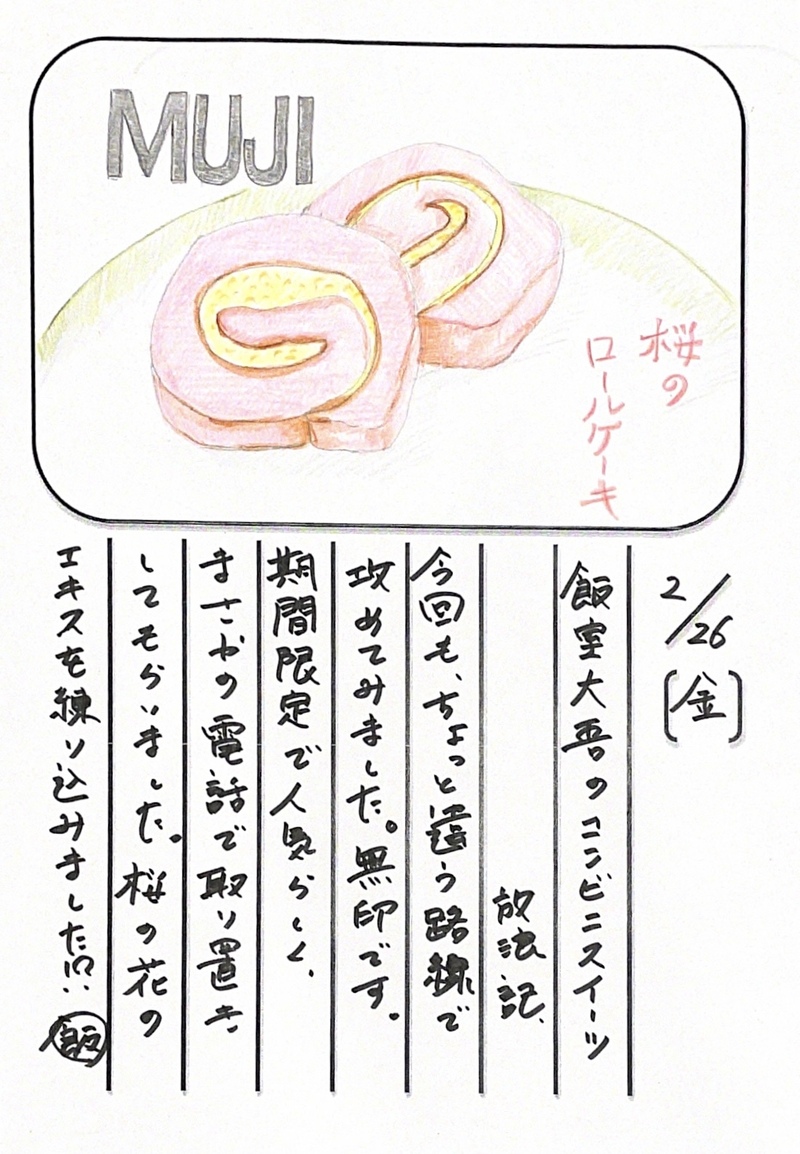 MUJI
桜の
ロールケーキ
2/26
[金]
飯室大吾のコンビニスイーツ
放浪記、
今回も、ちょっと違う路線で
攻めてみました。無印です。
期間限定で人気らしく、
まさかの電話で取り置き
してもらいました。桜の花の
エキスを練り込みました!?
飯